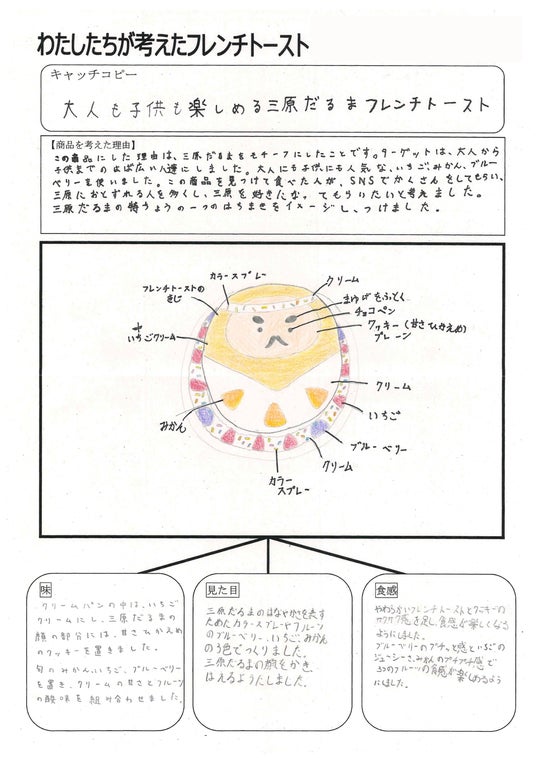 わたしたちが考えたフレンチトースト
キャッチコピー
大人も子供も楽しめる三原だるまフレンチトースト
【商品を考えた理由】
この商品にした理由は、三原だるまをモチーフにしたことです。ターゲットは、大人から
子供までのはば広い人達にしました。大人にも子供にも人気な、いちご、みかん、ブルー
ベリーを使いました。この商品を見つけて食べた人が、SNSでかくさんをしてもらい、
三原におとずれる人を多くし、三原を好きになってもらいたいと考えました。
三原だるまの特ちょうの一つのはちまきをイメージし、つけました。
カラースプレー
クリーム
フレンチトーストの
きじ
まゆげをふとく
チョコペン
クッキー(甘さひかえめ)
プレーン
+
いちごクリーム
クリーム
いちご
みかん
ブルーベリー
クリーム
カラー
スプレー
味
クリームパンの中は、いちご
クリームにし、三原だるまの
顔の部分には、甘さひかえめ
のクッキーを置きました。
旬のみかん、いちご、ブルーベリー
を置き、クリームの甘さとフルーツ
の酸味を組み合わせました。
見た目
三原だるまのはなやかさを表す
ためカラースプレーやフルーツ
のブルーベリー、いちご、みかん
の3色でつくりました。
三原だるまの顔をかき、
はえるようにしました。
食感
やわらかいフレンチトーストとクッキーの
サクサク感を足し、食感が楽しくなる
ようにしました。
ブルーベリーのプチッと感といちごの
ジューシーさ、みかんのプチプチ感で
3つのフルーツの食感が楽しめるよう
にしました。